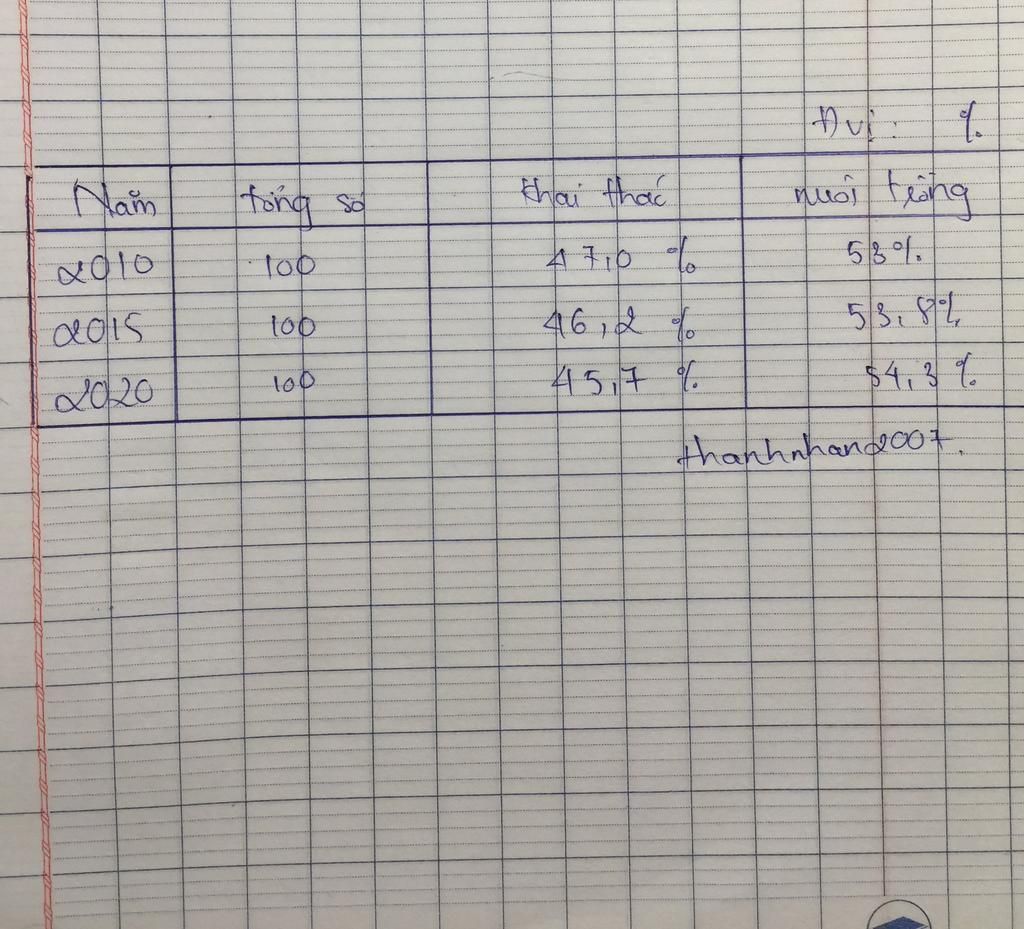 Đvị: %
Năm tổng số khai thác nuôi trồng
2010 100 47,0 % 53%
2015 100 46,2 % 53,8%
2020 100 45,7 % 54,3 %
thanhnhan2007.